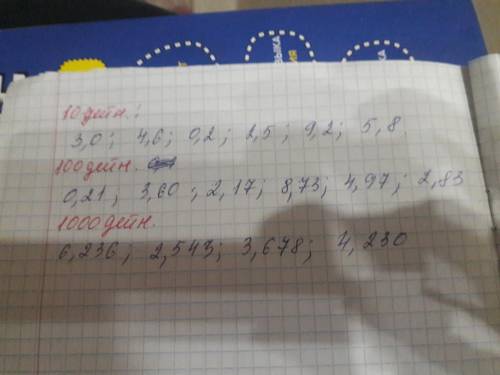 10 дейн.:
3,0; 4,6; 0,2; 2,5; 9,2; 5,8.
100 дейн.
0,21; 3,60; 2,17; 8,73; 4,97; 2,83
1000 дейн.
6,236; 2,543; 3,678; 4,230